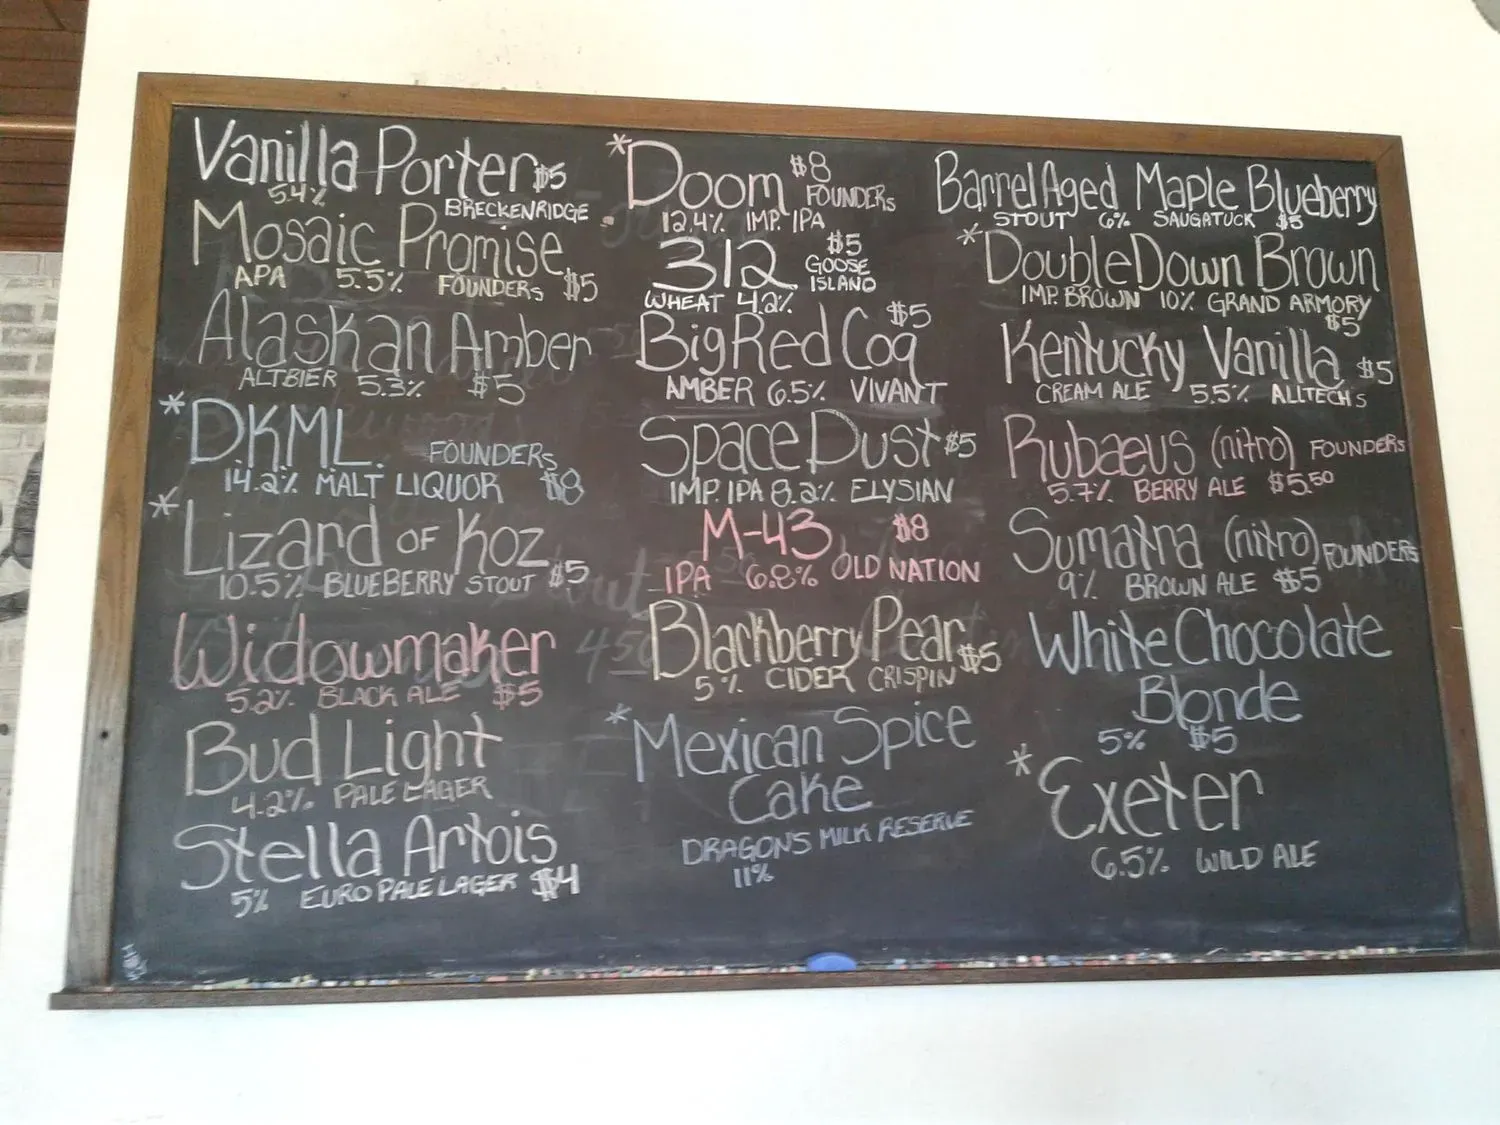 Vanilla Porter $5
5.4% BRECKENRIDGE
Mosaic Promise
APA 5.5% FOUNDERS $5
Alaskan Amber
ALTBIER 5.3% $5
* DKML. FOUNDERS
14.2% MALT LIQUOR $8
* Lizard OF Koz
10.5% BLUEBERRY STOUT $5
Widowmaker
5.2% BLACK ALE $5
Bud Light
4.2% PALE LAGER
Stella Artois
5% EURO PALE LAGER $4
* Doom $8
FOUNDERS
12.4% IMP. IPA
312 $5
GOOSE
ISLAND
WHEAT 4.2%
Big Red Coq $5
AMBER 6.5% VIVANT
Space Dust $5
IMP. IPA 8.2% ELYSIAN
M-43 $8
IPA 6.8% OLD NATION
Blackberry Pear $5
5% CIDER CRISPIN
* Mexican Spice
Cake
DRAGON'S MILK RESERVE
11%
Barrel Aged Maple Blueberry
STOUT 6% SAUGATUCK $5
* Double Down Brown
IMP. BROWN 10% GRAND ARMORY
$5
Kentucky Vanilla $5
CREAM ALE 5.5% ALLTECHS
Rubaeus (nitro) FOUNDERS
5.7% BERRY ALE $5.50
Sumatra (nitro) FOUNDERS
9% BROWN ALE $5
White Chocolate
Blonde
5% $5
* Exeter
6.5% WILD ALE